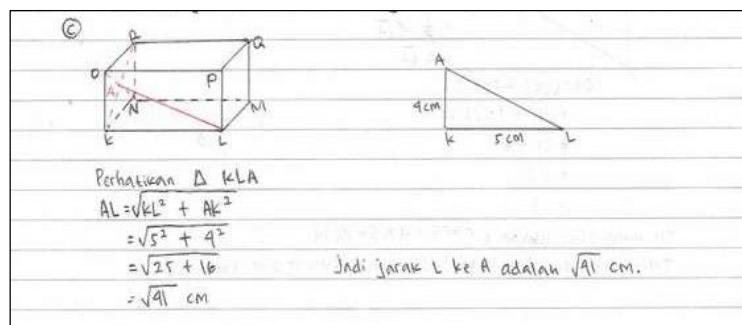 C
R
Q
O
P
A
N
M
K
L
A
4cm
K
5cm
L
Perhatikan Δ KLA
AL = √KL² + AK²
= √5² + 4²
= √25 + 16
= √41 cm
Jadi jarak L ke A adalah √41 cm.